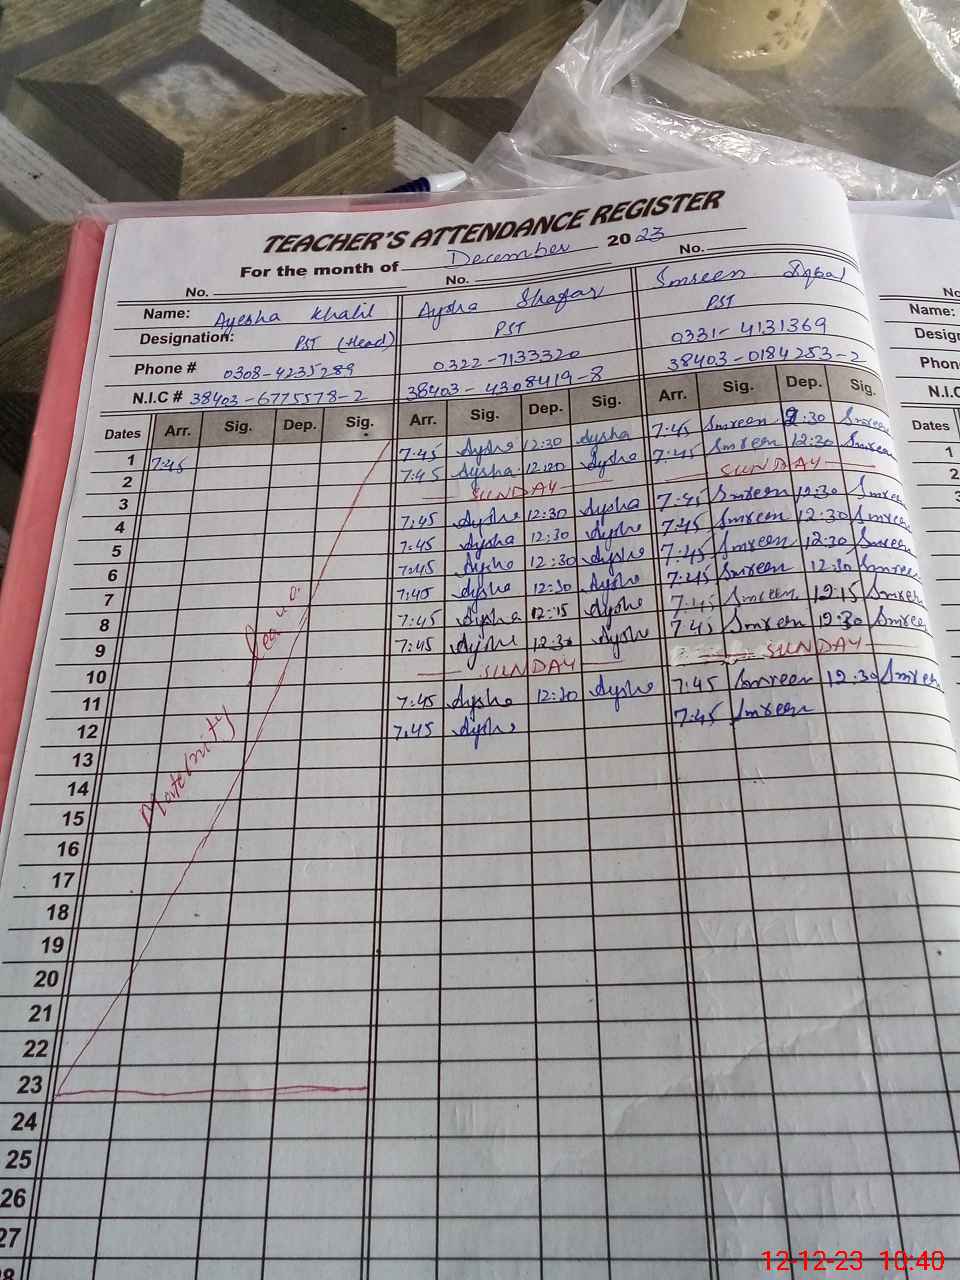 TEACHER'S ATTENDANCE REGISTER
For the month of December 2023
No. No. No.
Name: Ayesha Khalil Aysha Shafar Smreen Iqbal
Designation: PST (Head) PST PST
Phone # 0308-4235289 0322-7133320 0331-4131369
N.I.C # 38403-6775578-2 38403-4308419-8 38403-0184253-2
Dates Arr. Sig. Dep. Sig. Arr. Sig. Dep. Sig. Arr. Sig. Dep. Sig.
1 7:45 7:45 Aysha 12:30 Aysha 7:45 Smreen 12:30 Smreen
2 7:45 Aysha Aysha 7:45 Smreen 12:30 Smreen
3 SUNDAY SUNDAY
4 7:45 Aysha 12:30 Aysha 7:45 Smreen 12:30 Smreen
5 7:45 Aysha 12:30 Aysha 7:45 Smreen 12:30 Smreen
6 7:45 Aysha 12:30 Aysha 7:45 Smreen 12:30 Smreen
7 7:45 Aysha 12:30 Aysha 7:45 Smreen 12:30 Smreen
8 7:45 Aysha 12:15 Aysha 7:45 Smreen 12:15 Smreen
9 7:45 Aysha 12:30 Aysha 7:45 Smreen 12:30 Smreen
10 SUNDAY SUNDAY
11 7:45 Aysha 12:30 Aysha 7:45 Smreen 12:30 Smreen
12 7:45 Aysha 7:45 Smreen
Maternity Leave
13
14
15
16
17
18
19
20
21
22
23
24
25
26
27
28
No
Name:
Design
Phon
N.I.C
Dates
1
2
3
12-12-23 10:40